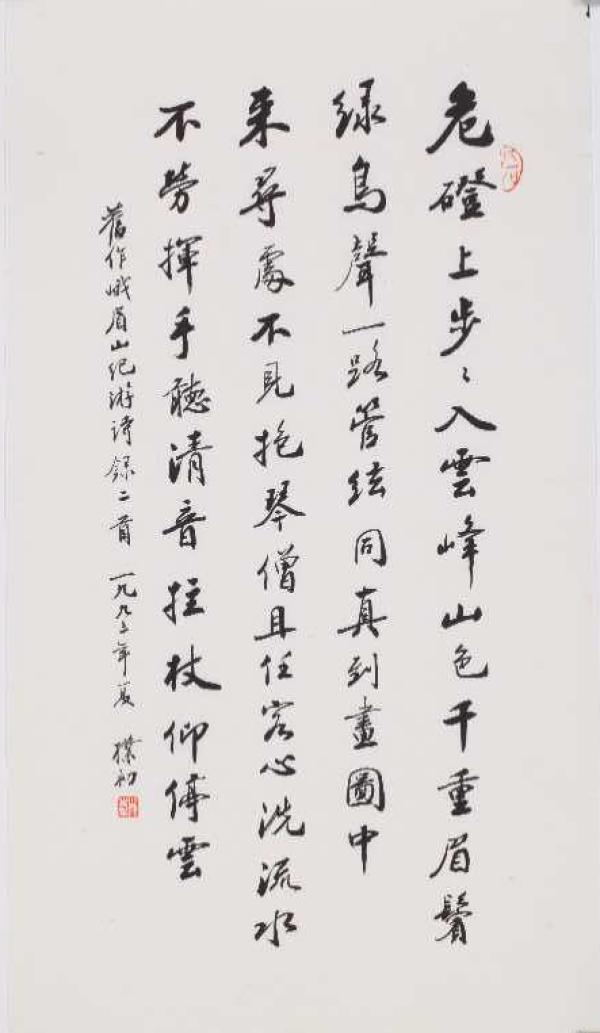 危磴上步〻入雲峰山色千重眉鬢
绿鳥聲一路管弦同真到畫圖中
来尋處不見抱琴僧且任客心洗流水
不勞揮手聽清音拄杖仰停雲
舊作峨眉山纪游诗録二首 一九九三年夏 樸初